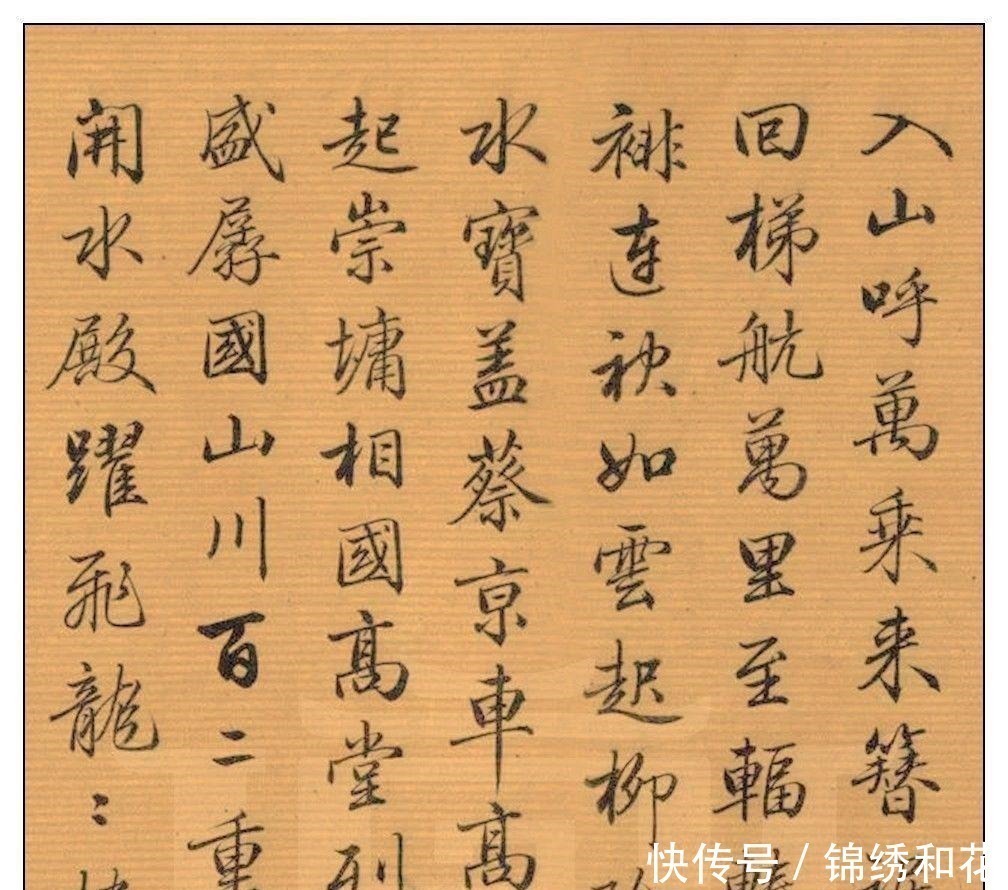 入山呼萬乘来簪
回梯航萬里至輻
裶連袂如雲起柳
水寶盖蔡京車高
起崇墉相國高堂列
盛孱國山川百二重
開水殿躍飛龍〻
快传号 / 锦绣和花